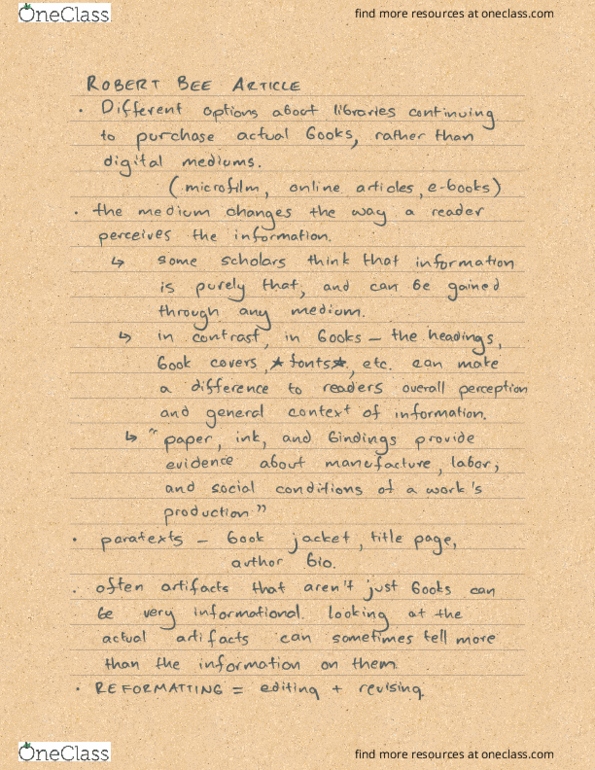 OneClass
find more resources at oneclass.com
ROBERT BEE ARTICLE
• Different options about libraries continuing
to purchase actual books, rather than
digital mediums.
(microfilm, online articles, e-books)
• the medium changes the way a reader
perceives the information.
↳ some scholars think that information
is purely that, and can be gained
through any medium.
↳ in contrast, in books – the headings,
book covers, ★fonts★, etc. can make
a difference to readers overall perception
and general context of information.
↳ "paper, ink, and bindings provide
evidence about manufacture, labor;
and social conditions of a work's
production"
• paratexts – book jacket, title page,
author bio.
• often artifacts that aren't just books can
be very informational. looking at the
actual artifacts can sometimes tell more
than the information on them.
• REFORMATTING = editing + revising.
OneClass
find more resources at oneclass.com